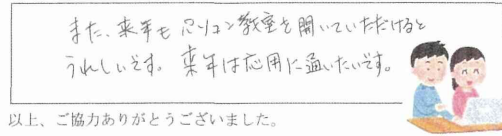 また、来年も パソコン教室を開いていただけると
うれしいです。来年は応用に通いたいです。
以上、ご協力ありがとうございました。